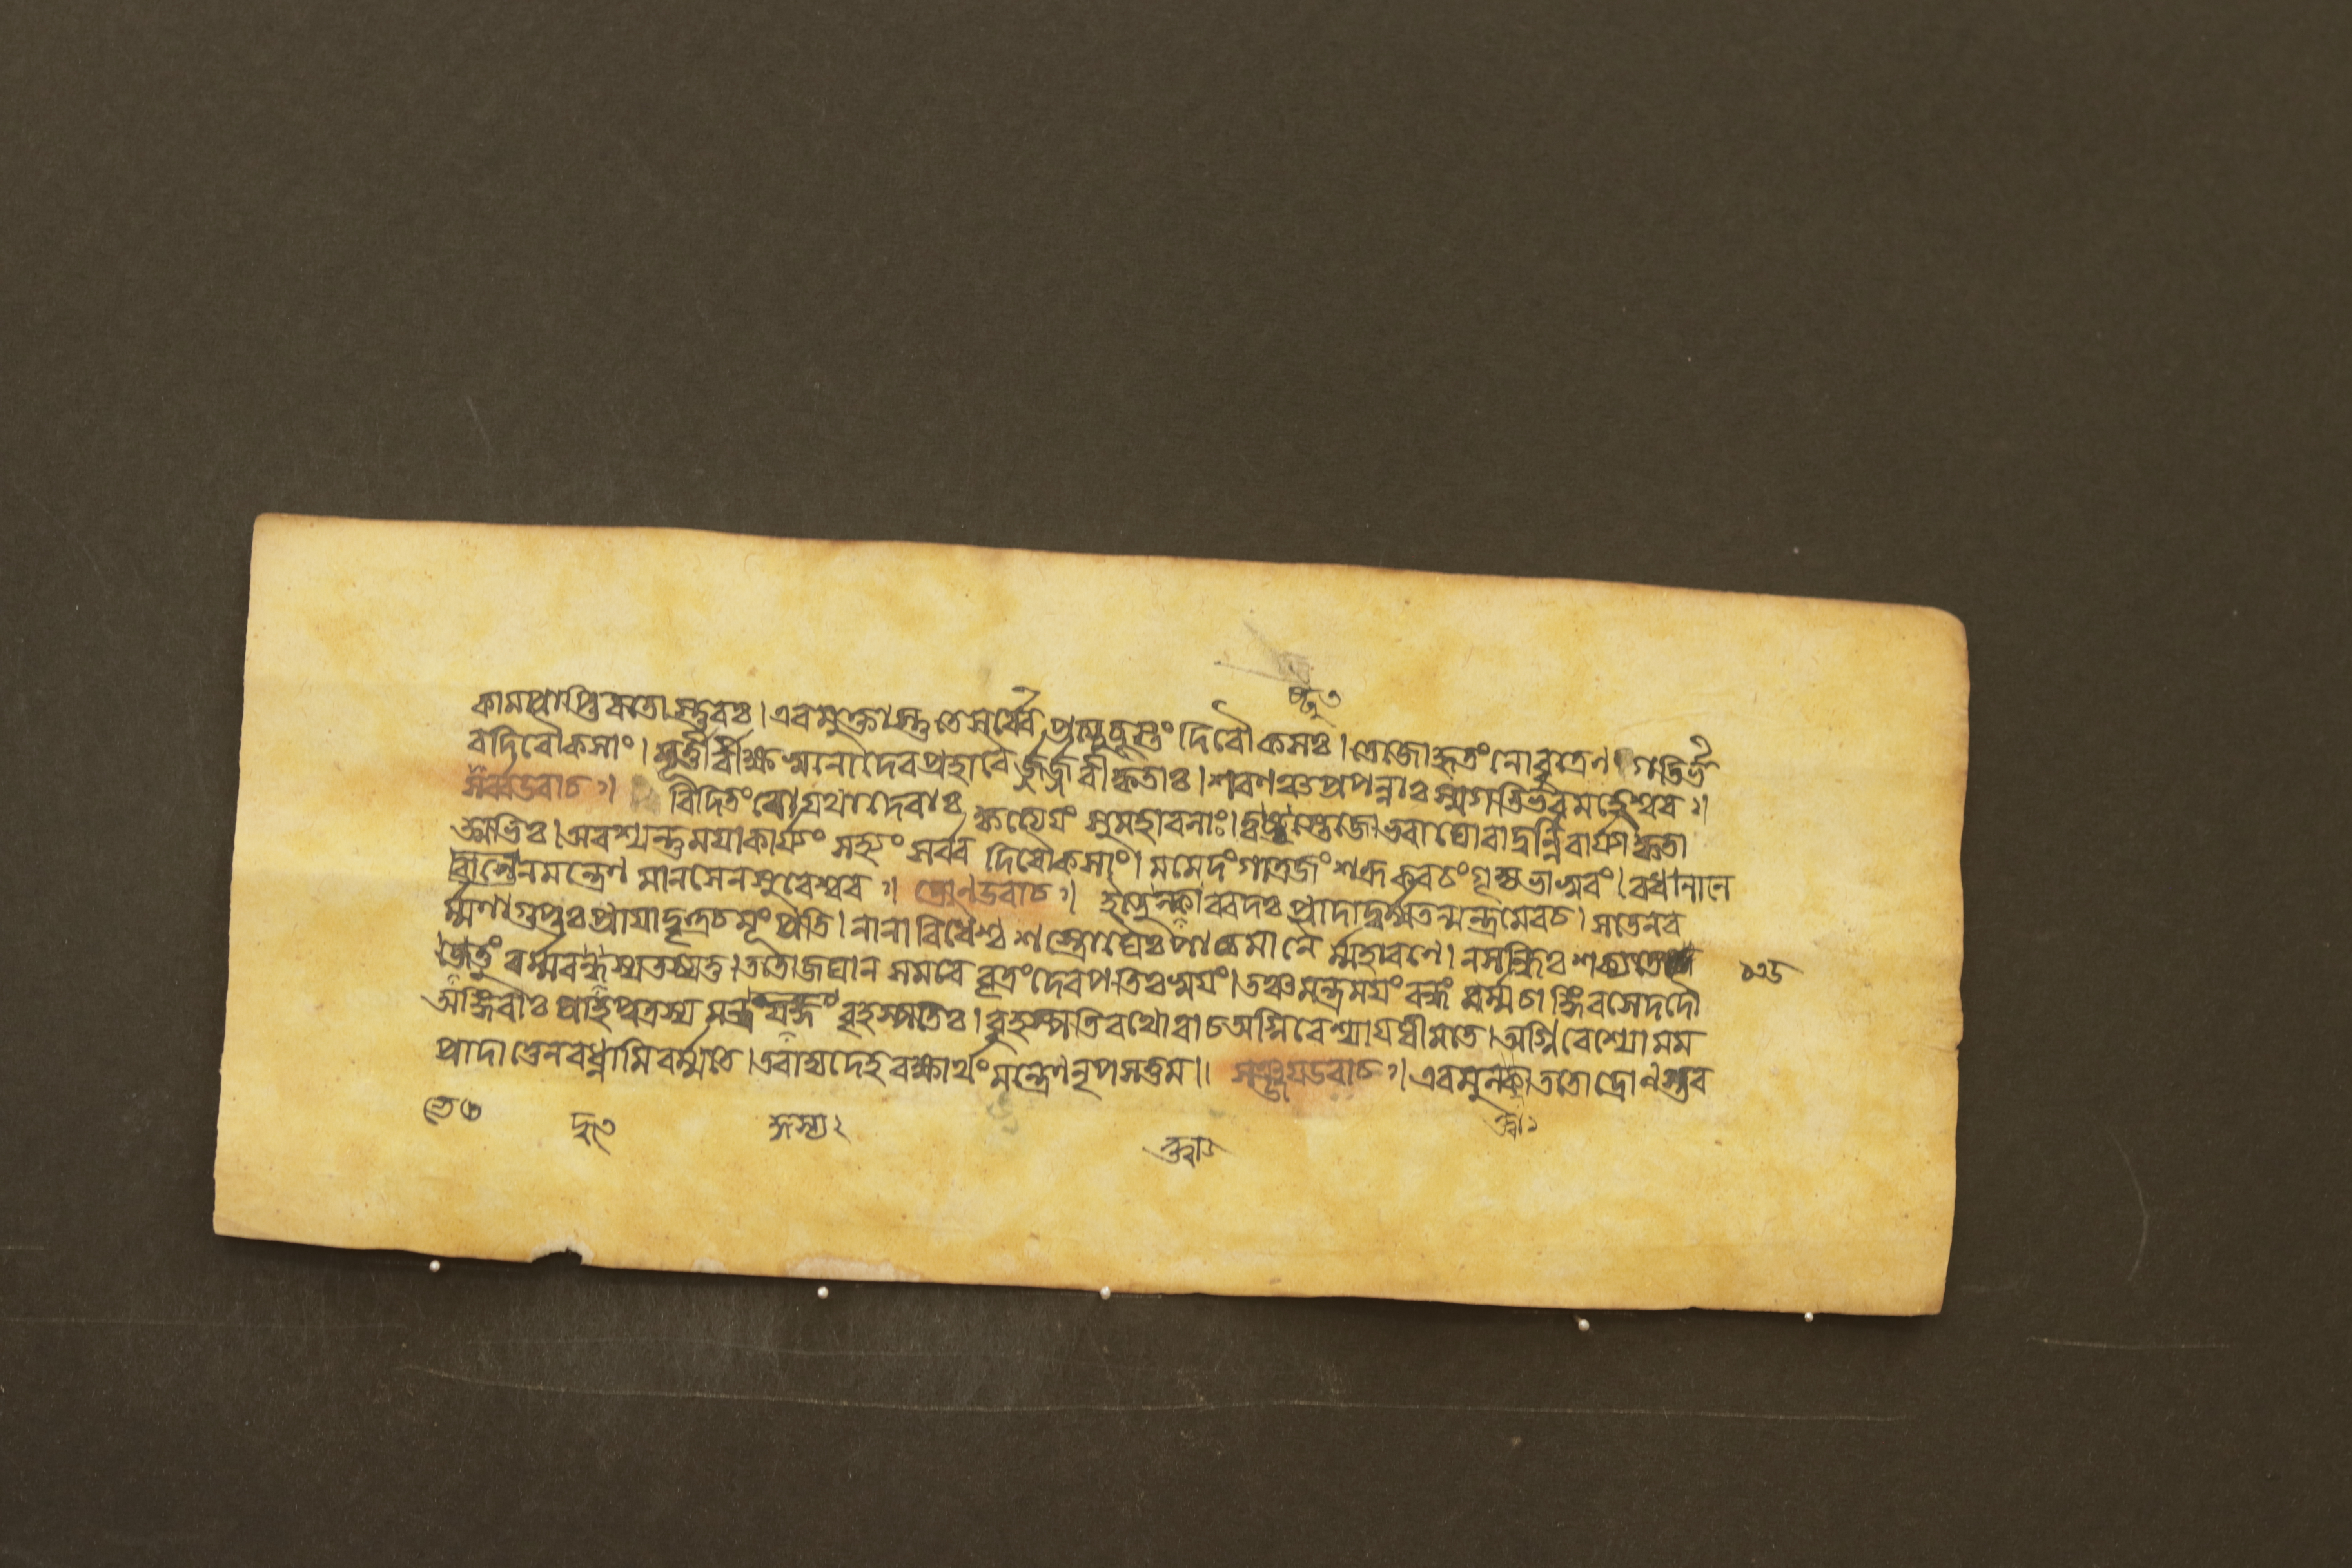 কামপ্রাপ্তিরতোস্তু বঃ। এবমুক্তাস্তু তে সর্ব্বে প্রত্যূচুস্তং দিবৌকসঃ। তেজোহৃতং নো বৃত্রেণ গতির্ভ
ব দিবৌকসাং। মূর্ত্তীর্বীক্ষস্ব নো দেব প্রহারৈর্জর্জরীকৃতাঃ। শরণঞ্চ প্রপন্নাঃ স্ম গতির্ভব মহেশ্বর ঃ।
সর্ব্বউবাচ ঃ। বিদিতং মে যথা দেবাঃ কৃত্যেয়ং সুমহাবলাঃ। ত্বষ্টুস্তেজোভবা ঘোরা দুর্ন্নিবার্য্যা কৃতা
ত্মভিঃ। অবশ্যন্তু ময়া কার্য্যং সহ্যং সর্ব্ব দিবৌকসাং। মমেদং গাত্রজং শক্র কবচং গৃহ্য ভাস্বরং। বধানানে
ন মন্ত্রেণ মানসেন সুরেশ্বর ঃ। দ্রোণউবাচ ঃ। ইত্যুক্ত্বা বরদঃ প্রাদাদ্বর্ম্ম তন্মন্ত্রমেব চ। স তেন ব
র্ম্মণা গুপ্তঃ প্রায়াদ্বৃত্রচমূং প্রতি। নানাবিধৈশ্চ শস্ত্রৌঘৈঃ পাত্যমানৈর্ম্মহারণে। ন সন্ধিঃ শক্যতে
ভেত্তুং বর্ম্মবন্ধস্য তস্য তু। ততো জঘান সমরে বৃত্রং দেবপতিঃ স্বয়ং। তঞ্চ মন্ত্রময়ং বন্ধং বর্ম্ম চাঙ্গিরসে দদৌ
অঙ্গিরাঃ প্রাহ পুত্রস্য মন্ত্র বৃহস্পতেঃ। বৃহস্পতিরথোবাচ অগ্নিবেশ্যায় ধীমতে। অগ্নিবেশ্যো মম
প্রাদাত্তেন বধ্নামি বর্ম্ম তে। তবাদ্য দেহরক্ষার্থং মন্ত্রেণ নৃপসত্তম॥ সঞ্জয়উবাচ ঃ। এবমুক্ত্বা ততো দ্রোণস্তব